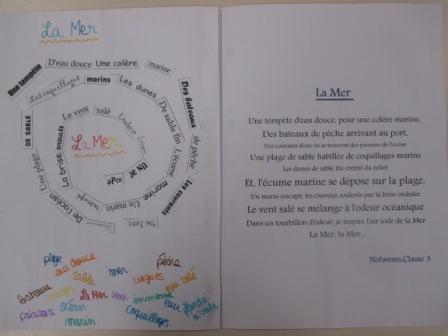 La Mer
Une tempête D'eau douce Une colère marine
Des bateaux de pêche
Les courants
De l'océan
Une plage DE SABLE
Les coquillages marins Les dunes De sable fin L'écume marine
Un marin
La brise ondulée
Le vent salé L'odeur
UN air iodé
La Mer
plage
eau douce
sable
mer
pêche
vagues
eau salé
bateaux
La Mer
immense
eau
poissons
océan
coquillages
marin
La Mer
Une tempête d'eau douce, pour une colère marine,
Des bateaux de pêche arrivant au port,
Des courants d'eau où se trouvent des poissons de l'océan
Une plage de sable habillée de coquillages marins
Les dunes de sable fin créent du relief
Et, l'écume marine se dépose sur la plage,
Un marin rescapé, les cheveux soulevés par la brise ondulée
Le vent salé se mélange à l'odeur océanique
Dans un tourbillon d'odeur, je respire l'air iodé de la Mer
La Mer, la Mer...
Nolwenn,Classe 5